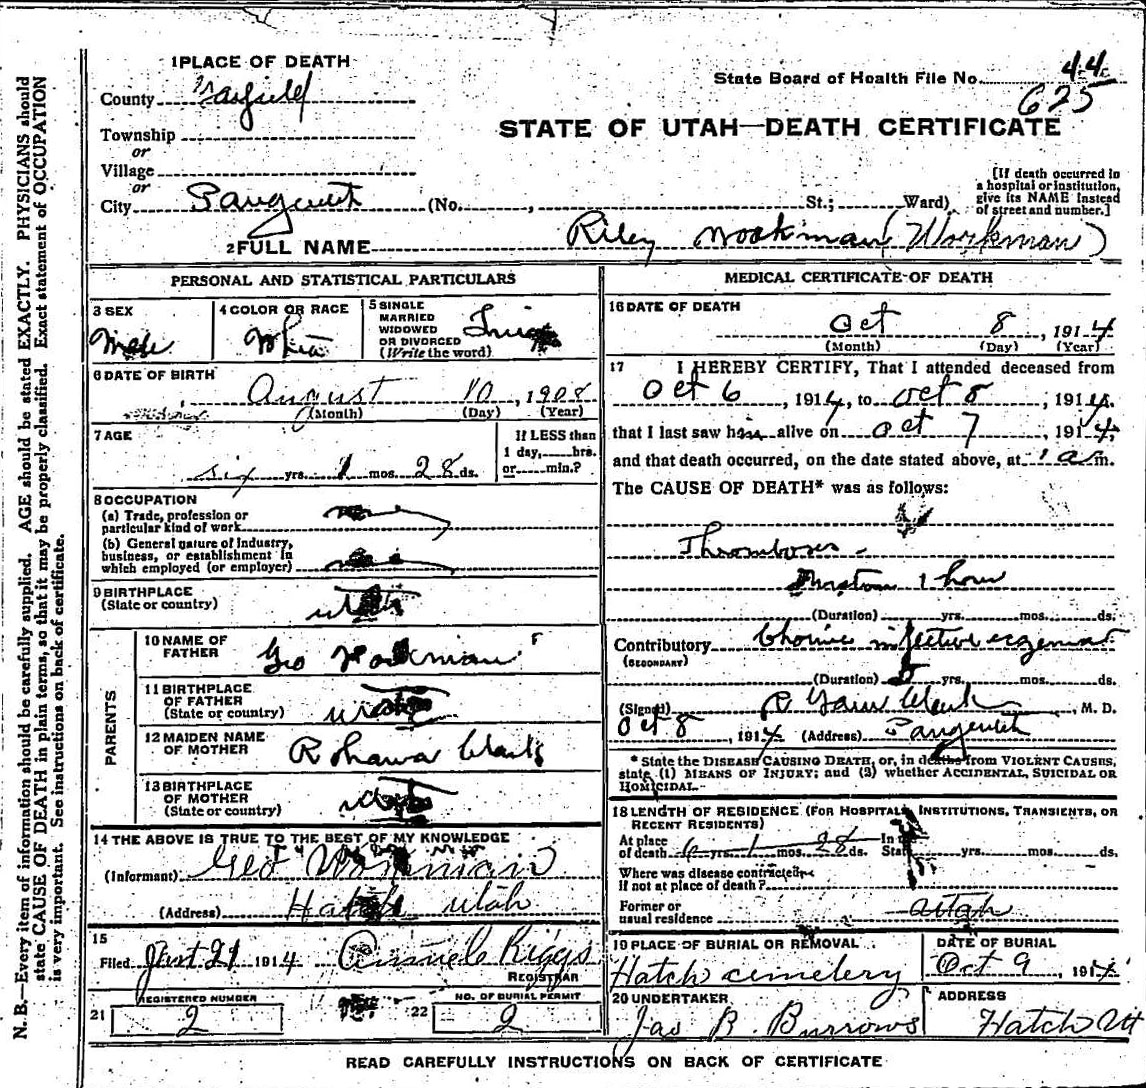 1 PLACE OF DEATH
County Garfield
State Board of Health File No. 44
625
Township
or
Village
or
City Panguitch (No. St.; Ward)
STATE OF UTAH—DEATH CERTIFICATE
[If death occurred in
a hospital or institution,
give its NAME instead
of street and number.]
2 FULL NAME Riley Workman (Workman)
PERSONAL AND STATISTICAL PARTICULARS
3 SEX
Male
4 COLOR OR RACE
White
5 SINGLE
MARRIED
WIDOWED
OR DIVORCED
(Write the word)
6 DATE OF BIRTH
August 10, 1908
(Month) (Day) (Year)
7 AGE
six yrs. 1 mos. 28 ds.
If LESS than
1 day, hrs.
or min.?
8 OCCUPATION
(a) Trade, profession or
particular kind of work
(b) General nature of industry,
business, or establishment in
which employed (or employer)
9 BIRTHPLACE
(State or country) Utah
PARENTS
10 NAME OF
FATHER Geo Workman
11 BIRTHPLACE
OF FATHER
(State or country)
12 MAIDEN NAME
OF MOTHER
13 BIRTHPLACE
OF MOTHER
(State or country)
14 THE ABOVE IS TRUE TO THE BEST OF MY KNOWLEDGE
(Informant) Geo Workman
(Address) Hatch Utah
15
Filed 21 1914 Riggs
REGISTRAR
REGISTERED NUMBER
21 2
NO. OF BURIAL PERMIT
22 2
MEDICAL CERTIFICATE OF DEATH
16 DATE OF DEATH
Oct 8, 1914
(Month) (Day) (Year)
17 I HEREBY CERTIFY, That I attended deceased from
Oct 6, 1914, to Oct 8, 1914,
that I last saw him alive on Oct 7, 1914,
and that death occurred, on the date stated above, at 1 a m.
The CAUSE OF DEATH* was as follows:
Thrombosis
1 hour
(Duration) yrs. mos. ds.
Contributory infective eczema
(SECONDARY)
(Duration) 5 yrs. mos. ds.
(Signed) Clark, M. D.
Oct 8, 1914 (Address) Panguitch
* State the DISEASE CAUSING DEATH, or, in deaths from VIOLENT CAUSES,
state (1) MEANS OF INJURY; and (2) whether ACCIDENTAL, SUICIDAL OR
HOMICIDAL.
18 LENGTH OF RESIDENCE (FOR HOSPITALS, INSTITUTIONS, TRANSIENTS, OR
RECENT RESIDENTS)
At place
of death 6 yrs. 1 mos. 28 ds. In the
State yrs. mos. ds.
Where was disease contracted,
if not at place of death?
Former or
usual residence Utah
19 PLACE OF BURIAL OR REMOVAL
Hatch cemetery
DATE OF BURIAL
Oct 9, 1914
20 UNDERTAKER
Jas B. Burrows
ADDRESS
Hatch Ut
READ CAREFULLY INSTRUCTIONS ON BACK OF CERTIFICATE
N. B.—Every item of information should be carefully supplied. AGE should be stated EXACTLY. PHYSICIANS should
state CAUSE OF DEATH in plain terms, so that it may be properly classified. Exact statement of OCCUPATION
is very important. See instructions on back of certificate.